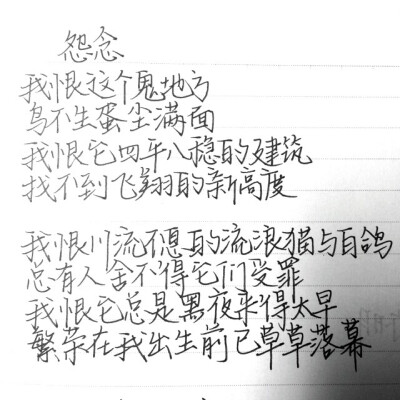 怨念
我恨这个鬼地方
鸟不生蛋尘满面
我恨它四平八稳的建筑
找不到飞翔的新高度
我恨川流不息的流浪猫与白鸽
总有人舍不得它们受罪
我恨它总是黑夜来得太早
繁荣在我出生前已草草落幕